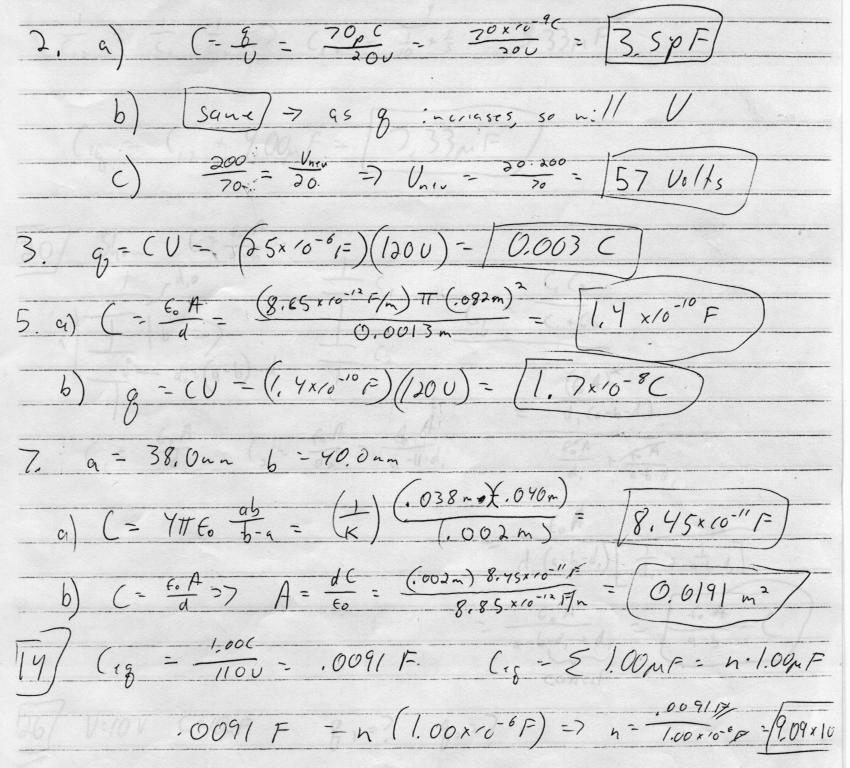 2. a) C = q/V = 70pC/20V = 70×10⁻⁹C/20V = 3.5pF
b) same → as q increases, so will V
c) 200/70 = Vnew/20 ⇒ Vnew = 20·200/70 = 57 Volts
3. q = CV = (25×10⁻⁶F)(120V) = 0.003 C
5. a) C = ε₀A/d = (8.65×10⁻¹²F/m)π(.082m)²/0.0013m = 1.4×10⁻¹⁰F
b) q = CV = (1.4×10⁻¹⁰F)(120V) = 1.7×10⁻⁸C
7. a = 38.0mm b = 40.0mm
a) C = 4πε₀ ab/b-a = (1/K) (.038m)(.040m)/(.002m) = 8.45×10⁻¹¹F
b) C = ε₀A/d ⇒ A = dC/ε₀ = (.002m) 8.45×10⁻¹¹F/8.85×10⁻¹²F/m = 0.0191 m²
14 Ceq = 1.00C/110V = .0091 F. Ceq = Σ 1.00μF = n·1.00μF
.0091 F = n(1.00×10⁻⁶F) ⇒ n = .0091F/1.00×10⁻⁶F = 9.09×10